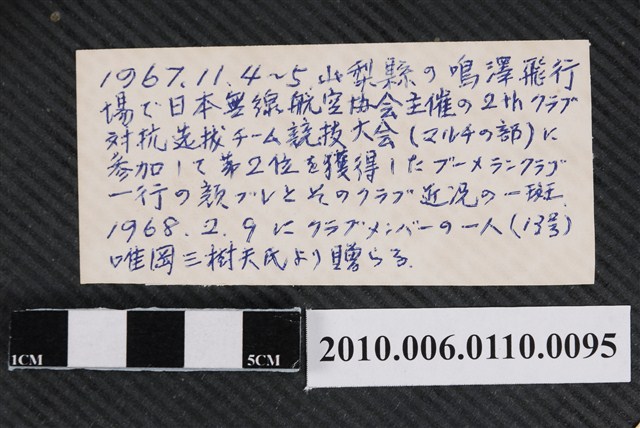 1967.11.4~5 山梨縣の鳴澤飛行
場で日本無線航空協会主催の2thクラブ
対抗選抜チーム競技大会(マルチの部)に
参加して第2位を獲得したブーメランクラブ
一行の顔ブレとそのクラブ近況の一斑.
1968.2.9にクラブメンバーの一人(13号)
唯岡三樹夫氏より贈らる.
1CM 5CM
2010.006.0110.0095